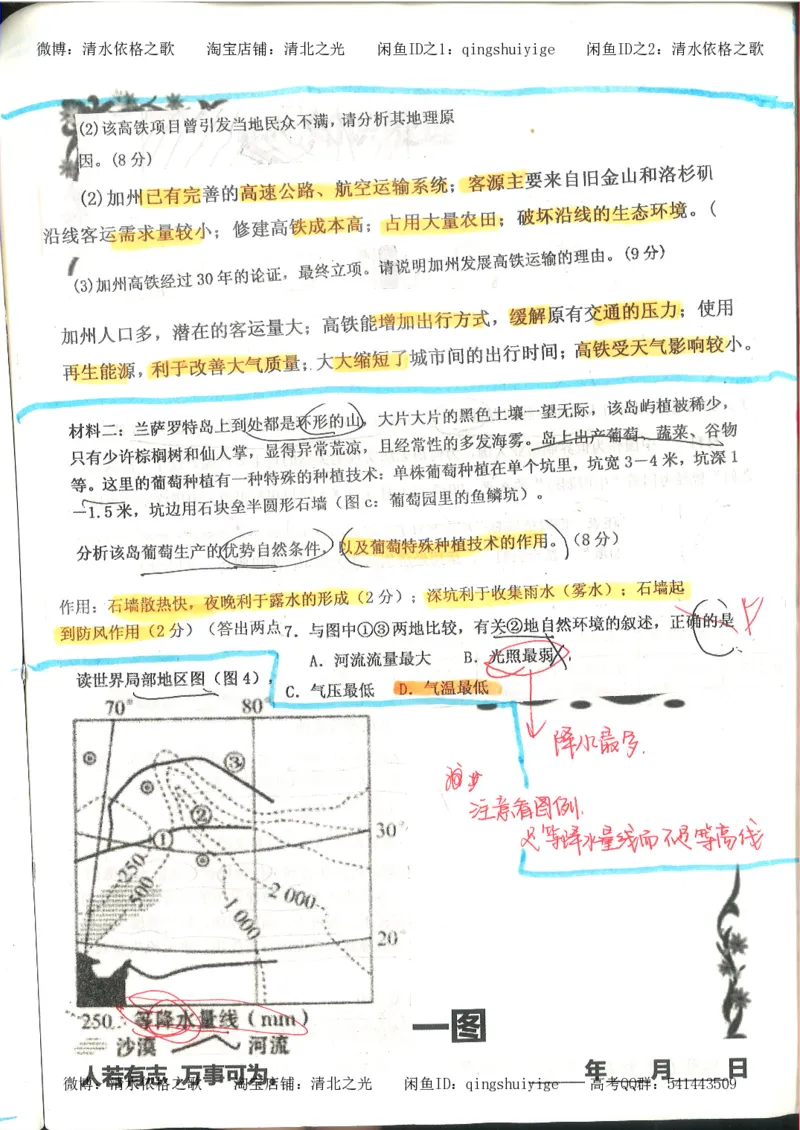 微博：清水依格之歌 淘宝店铺：清北之光 闲鱼ID之1：qingshuiyige 闲鱼ID之2：清水依格之歌
(2)该高铁项目曾引发当地民众不满，请分析其地理原
因。(8分)
(2)加州已有完善的高速公路、航空运输系统；客源主要来自旧金山和洛杉矶
沿线客运需求量较小；修建高铁成本高；占用大量农田；破坏沿线的生态环境。(
(3)加州高铁经过30年的论证，最终立项。请说明加州发展高铁运输的理由。(9分)
加州人口多，潜在的客运量大；高铁能增加出行方式，缓解原有交通的压力；使用
再生能源，利于改善大气质量；大大缩短了城市间的出行时间；高铁受天气影响较小。
材料二：兰萨罗特岛上到处都是环形的山，大片大片的黑色土壤一望无际，该岛屿植被稀少，
只有少许棕榈树和仙人掌，显得异常荒凉，且经常性的多发海雾。岛上出产葡萄、蔬菜、谷物
等。这里的葡萄种植有一种特殊的种植技术：单株葡萄种植在单个坑里，坑宽3－4米，坑深1
－1.5米，坑边用石块垒半圆形石墙（图c：葡萄园里的鱼鳞坑）。
分析该岛葡萄生产的优势自然条件，以及葡萄特殊种植技术的作用。（8分）
作用：石墙散热快，夜晚利于露水的形成（2分）；深坑利于收集雨水（雾水）；石墙起
到防风作用（2分）（答出两点
7．与图中①③两地比较，有关②地自然环境的叙述，正确的是
A．河流流量最大 B．光照最弱
读世界局部地区图（图4），
C．气压最低 D．气温最低
70° 80°
降水最多.
③
注意看图例.
②
30°
是等降水量线而不是等高线
①
250
500
2 000
1 000
20°
250 等降水量线（mm）
一图
沙漠 河流
人若有志，万事可为。
年 月 日
微博：清水依格之歌 淘宝店铺：清北之光 闲鱼ID：qingshuiyige 高考QQ群：541443509